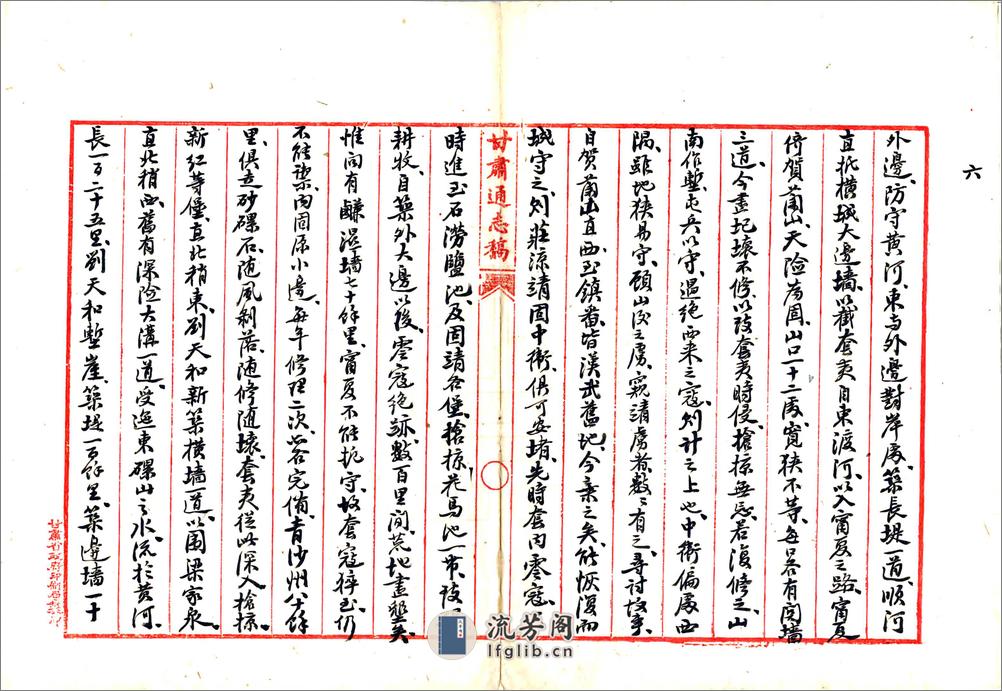 六
外邊防守黃河東与外邊對岸處築長堤一道順河
直抵橫城大邊墻以截套夷自東渡河以入甯夏之路甯夏
倚賀蘭山天险為固山口一十二處寬狹不等每口各有関墻
三道今盡圮壞不修以致套夷時侵搶掠無忌若復修之山
南作塹屯兵以守遏绝西来之寇则計之上也中衛偏處西
隅雖地狹易守顧山后之虜窺靖虏者數數有之尋討故事
自賀蘭山直西至鎮番皆漢武舊地今棄之矣能恢復而
城守之则莊涼靖固中衛俱可安堵先時套内零寇
甘肅通志稿
時進玉石澇鹽池及固靖各堡搶掠花馬池一帶
耕收自築外大邊以後零寇绝跡數百里间荒地盡墾矣
惟间有鹻濕墙七十餘里甯夏不能扼守故套寇猝至仍
不能禦内固原小邊每年修理二次尚各完備青沙州八十餘
里俱走砂礫石随風剥落随修随壞套夷從此深入搶掠
新紅等堡直北稍東劉天和新築横墙一道以圍梁家泉
直北稍西舊有深险大溝一道受迤東礫山之水流於黄河
長一百二十五里劉天和塹崖築堤一百餘里築邊墙一十
甘肅省政府印刷局
流芳阁
lfglib.cn